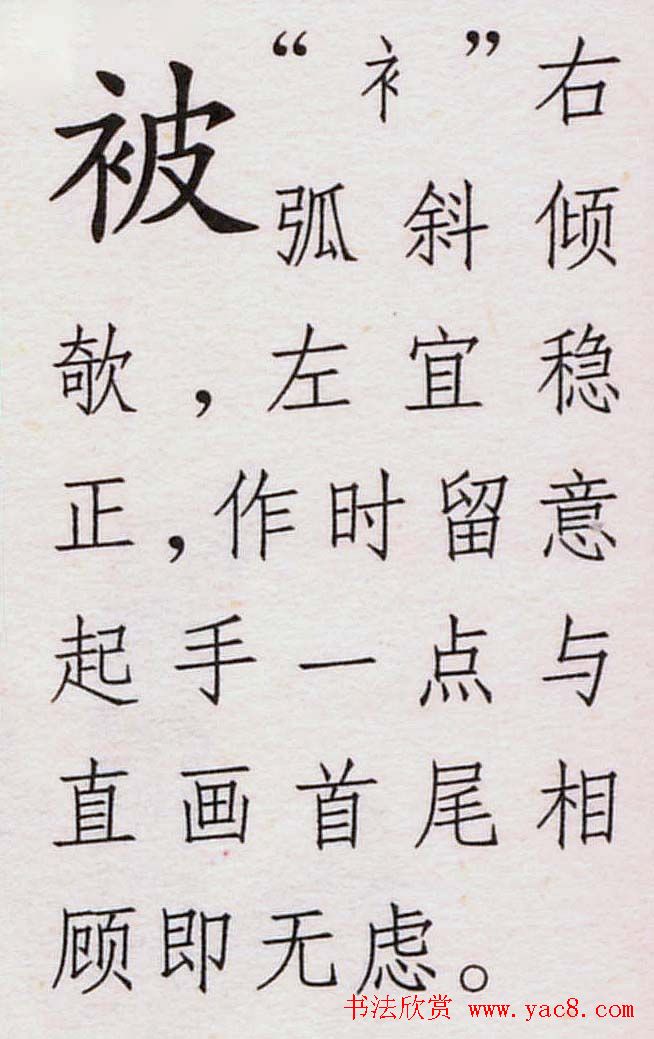 被
“衤”右
弧斜倾
欹，左宜稳
正，作时留意
起手一点与
直画首尾相
顾即无虑。
书法欣赏 www.yac8.com